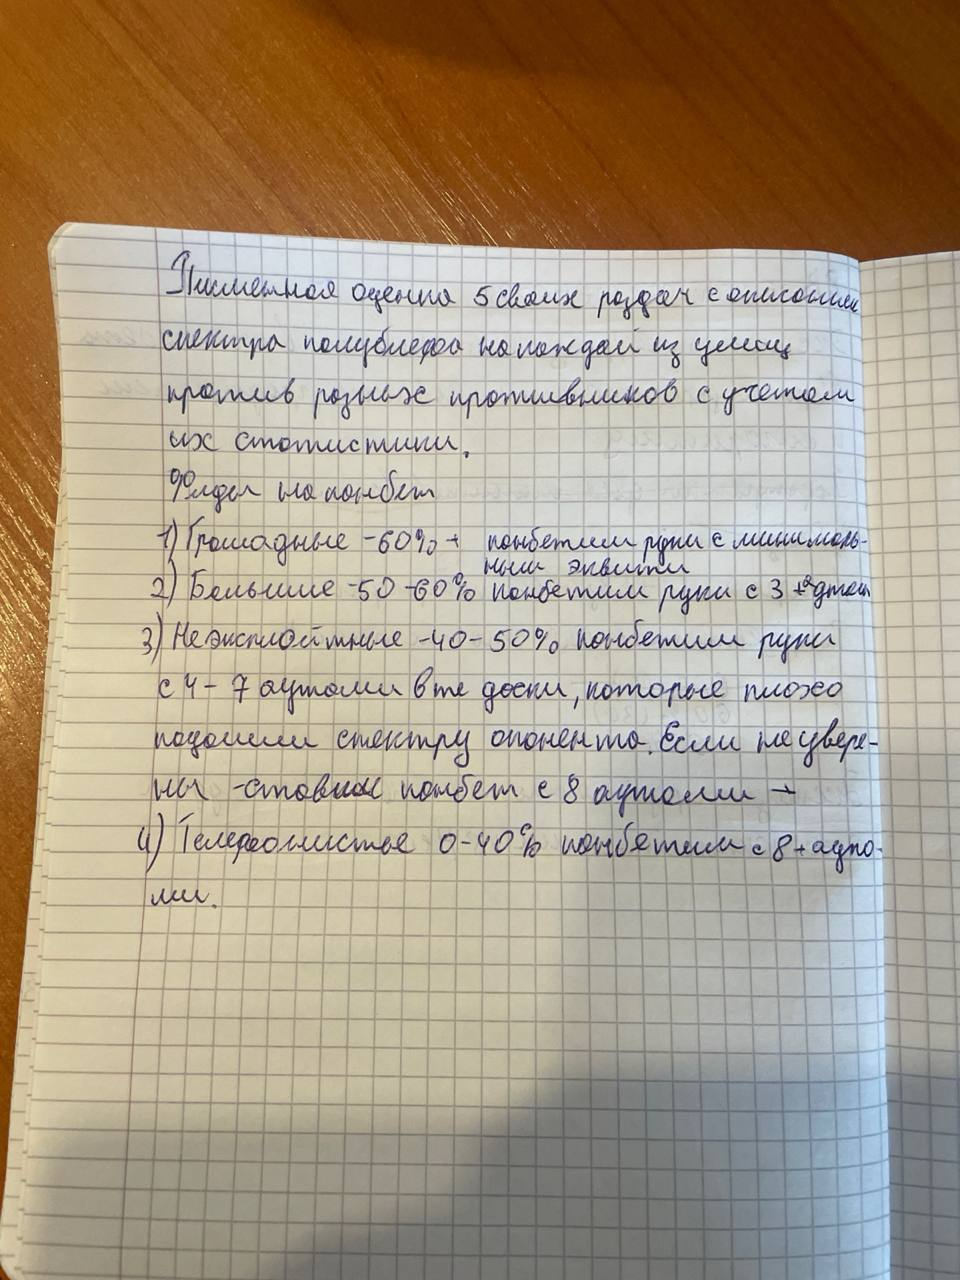 Письменная оценка 5 своих раздач с описанием
спектра полублефа на каждой из улиц
против разных противников с учетом
их статистики.
Фолды на конбет
1) Громадные -60%+ конбетим руки с минималь-
ным эквити
2) Большие -50-60% конбетим руки с 3+ аутами
3) Неэксплойтные -40-50% конбетим руки
с 4-7 аутами в те доски, которые плохо
подошли спектру опонента. Если не увере-
ны -ставим конбет с 8 аутами +
4) Телефонистые 0-40% конбетим с 8+ аута-
ми.